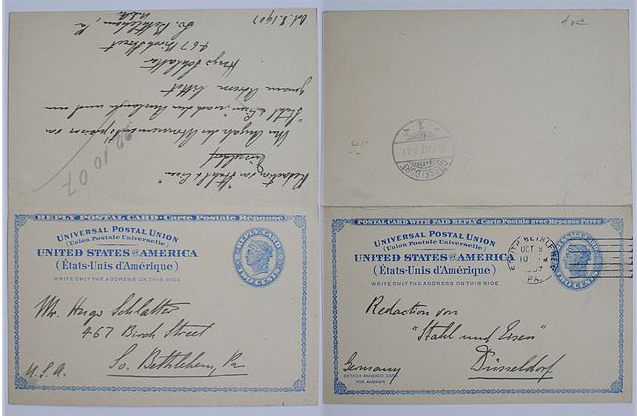 Redaction von "Stahl u. Eisen"
Düsseldorf
"Stahl u. Eisen" nach
genaue Adresse bittet
Hugo Schlatter
467 Birch Street
So. Bethlehem, Pa
U.S.A.
Oct. 8. 1907
10.07
REPLY POSTAL CARD - Carte Postale Réponse
UNIVERSAL POSTAL UNION
(Union Postale Universelle)
UNITED STATES OF AMERICA
(États-Unis d'Amérique)
WRITE ONLY THE ADDRESS ON THIS SIDE
REPLY CARD
TWO CENTS
Mr. Hugo Schlatter
467 Birch Street
So. Bethlehem, Pa
U.S.A.
DUSSELDORF
POSTAL CARD WITH PAID REPLY - Carte Postale avec Réponse Payée
UNIVERSAL POSTAL UNION
(Union Postale Universelle)
UNITED STATES OF AMERICA
(États-Unis d'Amérique)
WRITE ONLY THE ADDRESS ON THIS SIDE
SOUTH BETHLEHEM
OCT 8
1907
PA.
TWO CENTS
Redaction von
"Stahl und Eisen"
Düsseldorf
Germany
DETACH ANNEXED CARD
FOR ANSWER